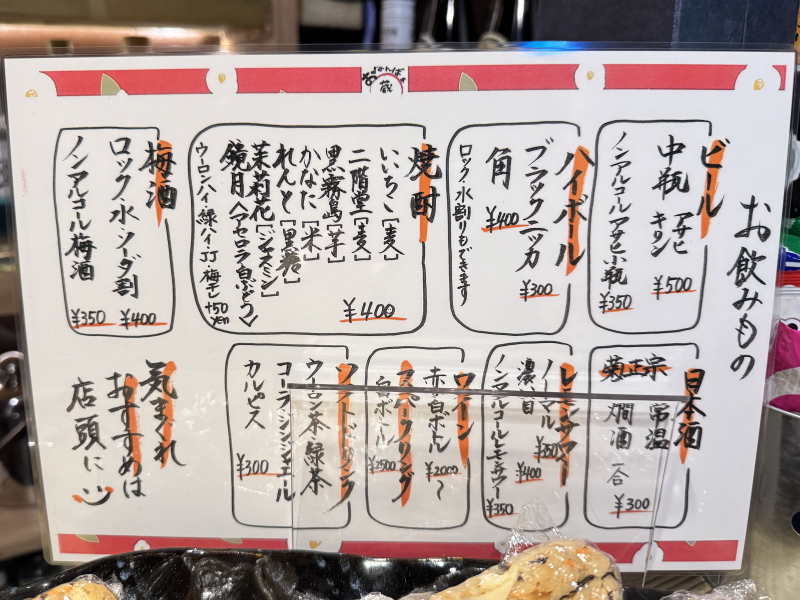 おなんばぁ
蔵
お飲みもの
ビール
中瓶 アサヒ キリン ¥500
ノンアルコール アサヒ小瓶 ¥350
ハイボール
ブラックニッカ ¥300
角 ¥400
ロック、水割りもできます
焼酎
いいちこ[麦]
二階堂[麦]
黒霧島[芋]
かなた[米]
れんと[黒糖]
茉莉花[ジャスミン]
鏡月〈アセロラ 白ぶどう〉
¥400
ウーロンハイ、緑ハイ、JJ、梅干し +50yen
梅酒
ロック、水、ソーダ割 ¥400
ノンアルコール梅酒 ¥350
日本酒
菊正宗
常温
燗酒 一合
¥300
レモンサワー
ノーマル ¥350
濃い目 ¥400
ノンアルコールレモンサワー ¥350
ワイン
赤・白ボトル ¥2000〜
スパークリング
白ボトル ¥2500
ソフトドリンク
ウーロン茶 緑茶
コーラ ジンジャエール
カルピス
¥300
気まぐれ
おすすめは
店頭に